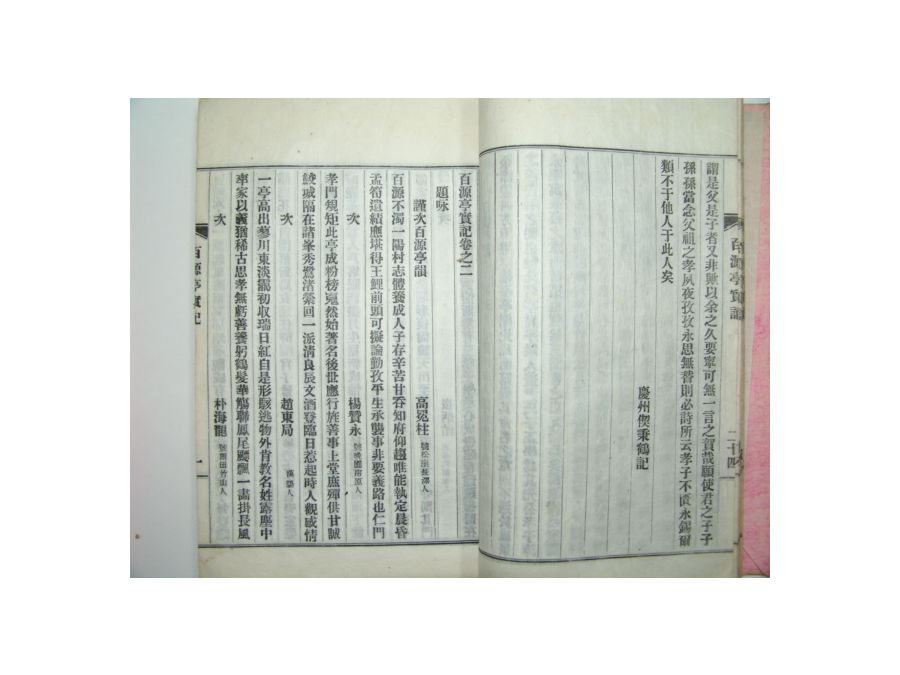 謂是父是子者又非歟以余之久要寧可無一言之賀哉願使君之子子
孫孫當念父祖之孝夙夜孜孜永思無替則必詩所云孝子不匱永錫爾
類不于他人于此人矣
慶州偰秉鶴記
百源亭實記
二十四
百源亭實記卷之二
題咏
謹次百源亭韻
高冕柱 號松
百源不濁一陽村志體養成人子存辛苦甘吞知府仰趨唯能執定晨昏
孟筍遺績應堪得王鯉前頭可擬論勤孜平生承襲事非要義路也仁門
次
楊贊永 南原人
孝門規矩此亭成粉榜巍然始著名後世應行旌善事上堂庶殫供甘誠
城隔在諸峯秀鷺渚縈回一派清良辰文酒登臨日惹起時人觀感情
次
趙東局 漢陽人
一亭高出蓼川東淡靄初收瑞日紅自是形骸逃物外肯教名姓露塵中
率家以義猶稀古思孝無虧善養躬鶴髮華觴聯鳳尾飄飄一畵掛長風
次
朴海龍 竹山人
百源亭實記
一